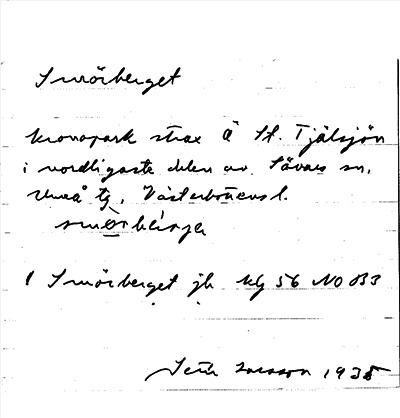 Smörberget
kronopark strax Å St. Tjälsjön
i nordligaste delen av Sävars sn,
Umeå tg, Västerbottens l.
smörbärje
( Smörberget jb kbl 56 NO B3
1935